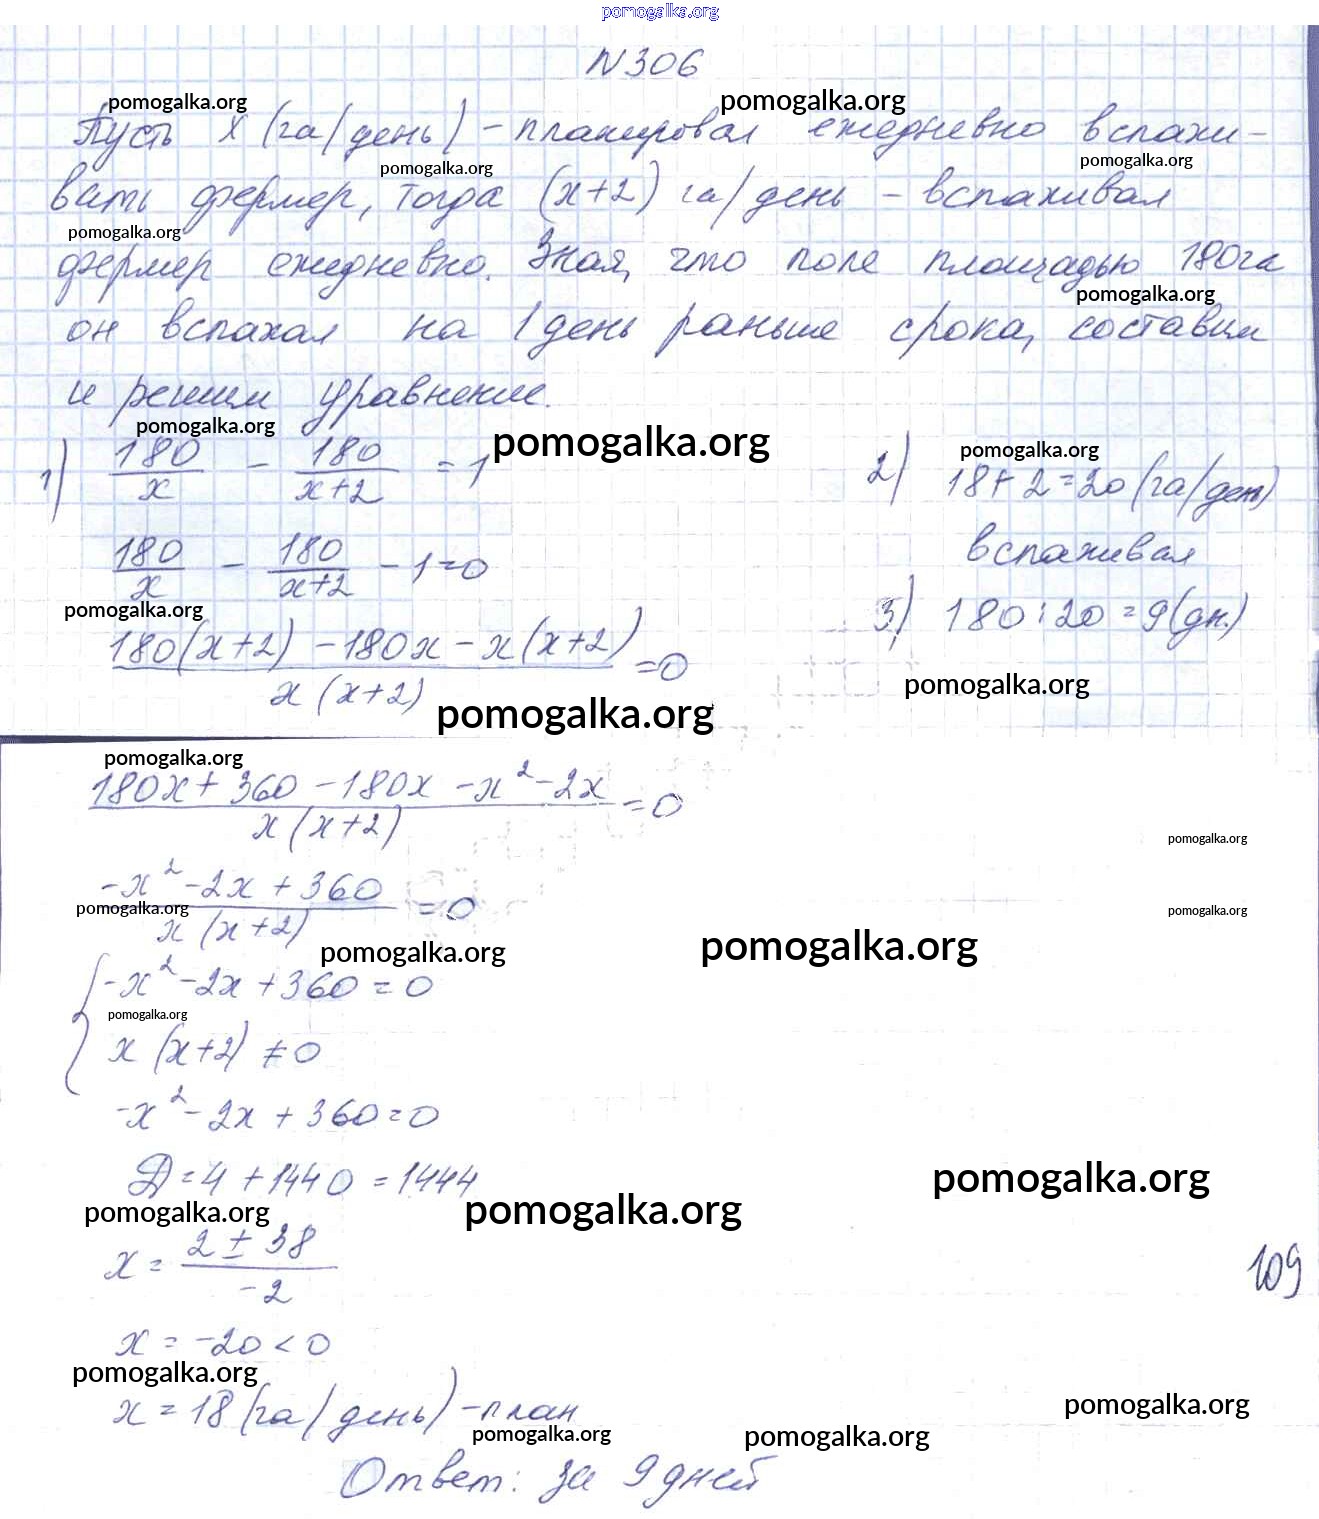 pomogalka.org
N 306
pomogalka.org pomogalka.org
Пусть x (га/день) – планировал ежедневно вспахи-
pomogalka.org pomogalka.org
вать фермер, тогда (x+2) га/день – вспахивал
pomogalka.org
фермер ежедневно. Зная, что поле площадью 180га
pomogalka.org
он вспахал на 1 день раньше срока, составим
и решим уравнение.
pomogalka.org pomogalka.org pomogalka.org
1) 180/x – 180/(x+2) = 1 2) 18+2=20 (га/день)
180/x – 180/(x+2) – 1=0 вспахивал
pomogalka.org
(180(x+2) – 180x – x(x+2))/(x(x+2)) =0 3) 180:20=9(дн.)
pomogalka.org pomogalka.org
pomogalka.org
(180x+360 – 180x – x²–2x)/(x(x+2)) =0
pomogalka.org
(-x²–2x+360)/(x(x+2)) =0
pomogalka.org pomogalka.org
pomogalka.org pomogalka.org
{ -x²–2x+360=0
pomogalka.org
x(x+2)≠0
-x²–2x+360=0
Д=4+1440=1444
pomogalka.org
pomogalka.org pomogalka.org
x = (2±38)/(-2)
109
x = -20<0
pomogalka.org
x = 18 (га/день) – план
pomogalka.org
pomogalka.org pomogalka.org
Ответ: за 9 дней